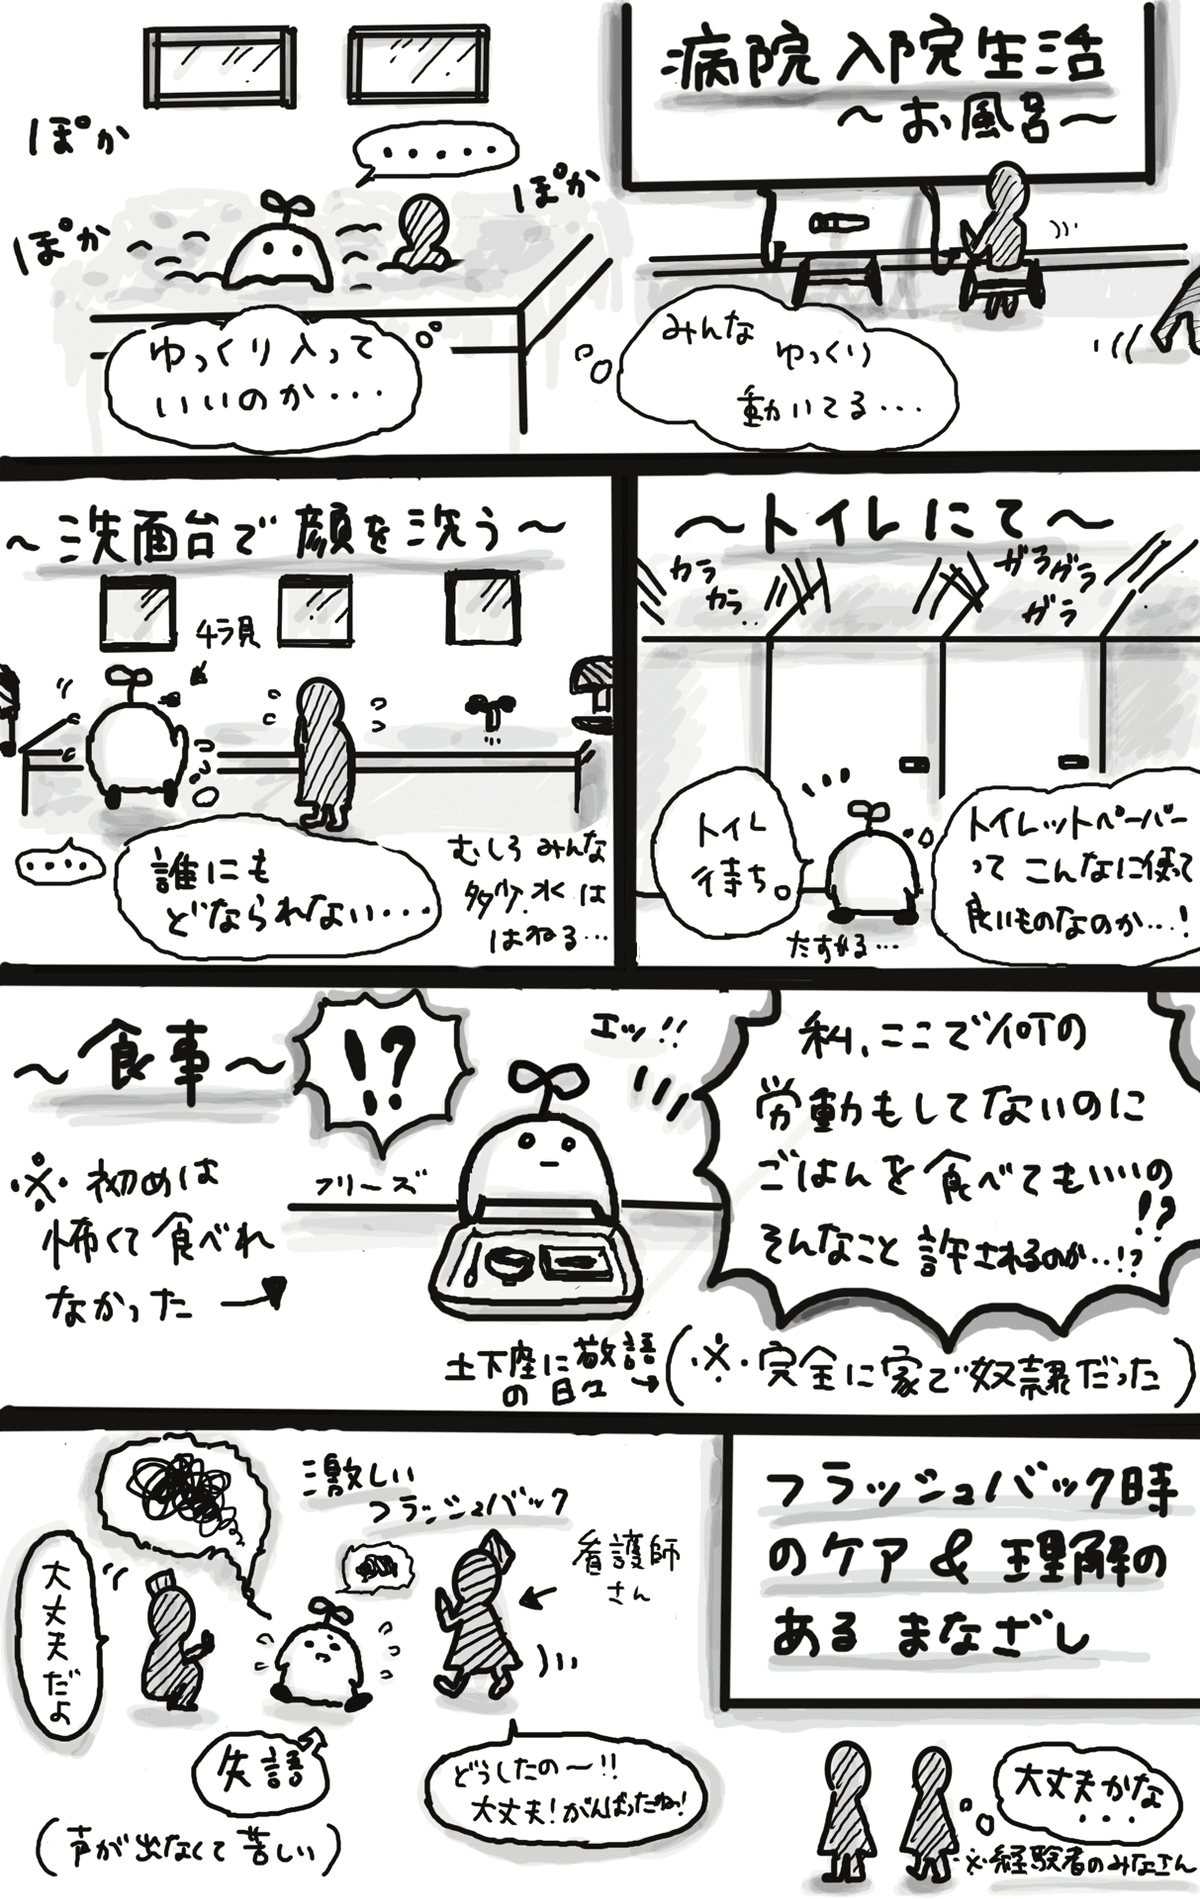 病院入院生活
〜お風呂〜
みんな
ゆっくり
動いてる...
ぽか
ぽか
ぽか
.....
ゆっくり入って
いいのか...
〜トイレにて〜
カラ
カラ..
ガラガラ
ガラ
トイレ
待ち。
たすかる...
トイレットペーパー
って こんなに使って
良いものなのか...!
〜洗面台で顔を洗う〜
チラ見
....
誰にも
どなられない...
むしろ みんな
多少.水は
はねる...
〜食事〜
!?
エッ!!
フリーズ
私、ここで何の
労働もしてないのに
ごはんを食べてもいいの
!?
そんなこと許されるのか..!?
※初めは
怖くて食べれ
なかった
土下座に敬語
の日々
(※完全に家で奴隷だった)
フラッシュバック時
のケア & 理解の
ある まなざし
激しい
フラッシュバック
看護師
さん
大丈夫だよ
失語
(声が出なくて苦しい)
どうしたの〜!!
大丈夫!がんばったね!
大丈夫かな
...
※経験者のみなさん